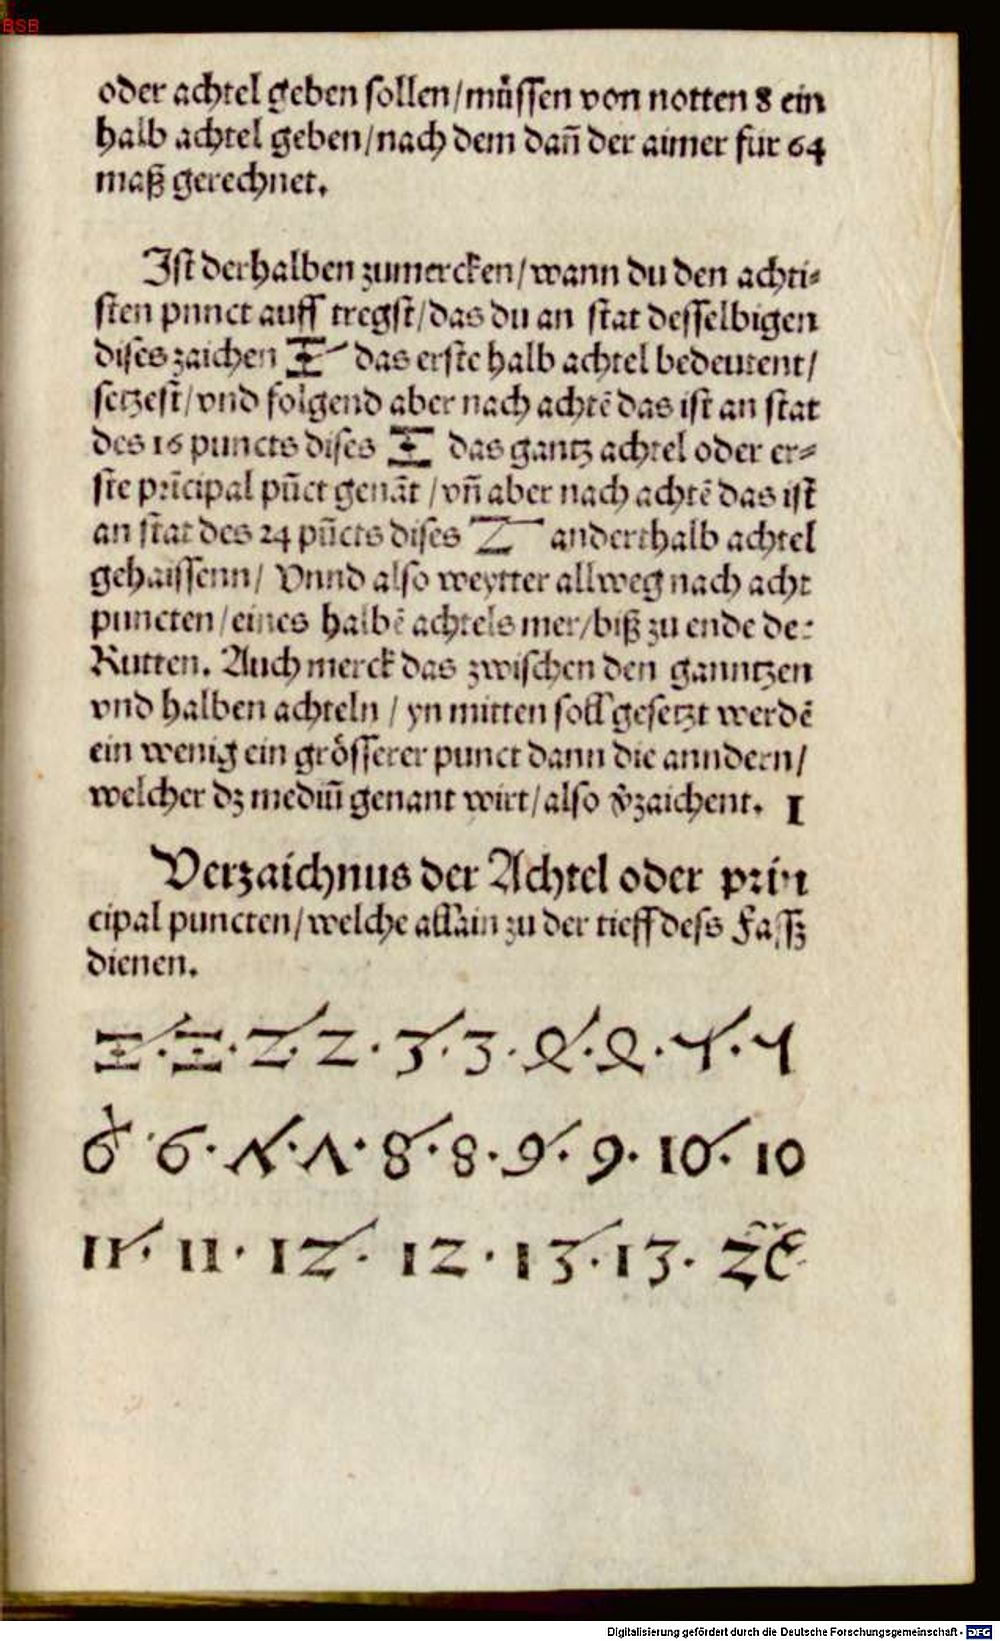 BSB
oder achtel geben sollen/müssen von notten 8 ein
halb achtel geben/nach dem dañ der aimer für 64
maß gerechnet.
Ist derhalben zumercken/wann du den achti⸗
sten punct auff tregst/das du an stat desselbigen
dises zaichen das erste halb achtel bedeutent/
setzest/vnd folgend aber nach achtē das ist an stat
des 16 puncts dises das gantz achtel oder er⸗
ste prīcipal pūct genāt/vñ aber nach achtē das ist
an stat des 24 pūcts dises anderthalb achtel
gehaissenn/ Vnnd also weytter allweg nach acht
puncten/eines halbē achtels mer/biß zu ende der
Rutten. Auch merck das zwischen den ganntzen
vnd halben achteln / yn mitten soll gesetzt werdē
ein wenig ein grösserer punct dann die anndern/
welcher dz mediū genant wirt/also v̄zaichent. I
Verzaichnus der Achtel oder prin
cipal puncten/welche allain zu der tieff dess Fassz
dienen.
I · I · 2 · 2 · 3 · 3 · 4 · 4 · 5 · 5
6 · 6 · 7 · 7 · 8 · 8 · 9 · 9 · 10 · 10
11 · 11 · 12 · 12 · 13 · 13 · ꝛc̃
Digitalisierung gefördert durch die Deutsche Forschungsgemeinschaft - DFG